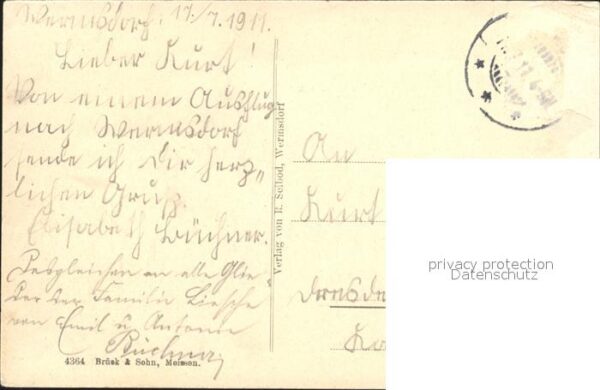 Wermsdorf. 17./7.1911.
Lieber Kurt!
Von einem Ausflug
nach Wermsdorf
sende ich Dir herz„
lichen Gruß.
Elisabeth Büchner.
Desgleichen an alle Glie-
der der Familie
von Emil u. Antonie
Büchner
4364 Brück & Sohn, Meissen.
Verlag von R. Seibod, Wermsdorf
An
Kurt
Dresde
privacy protection
Datenschutz